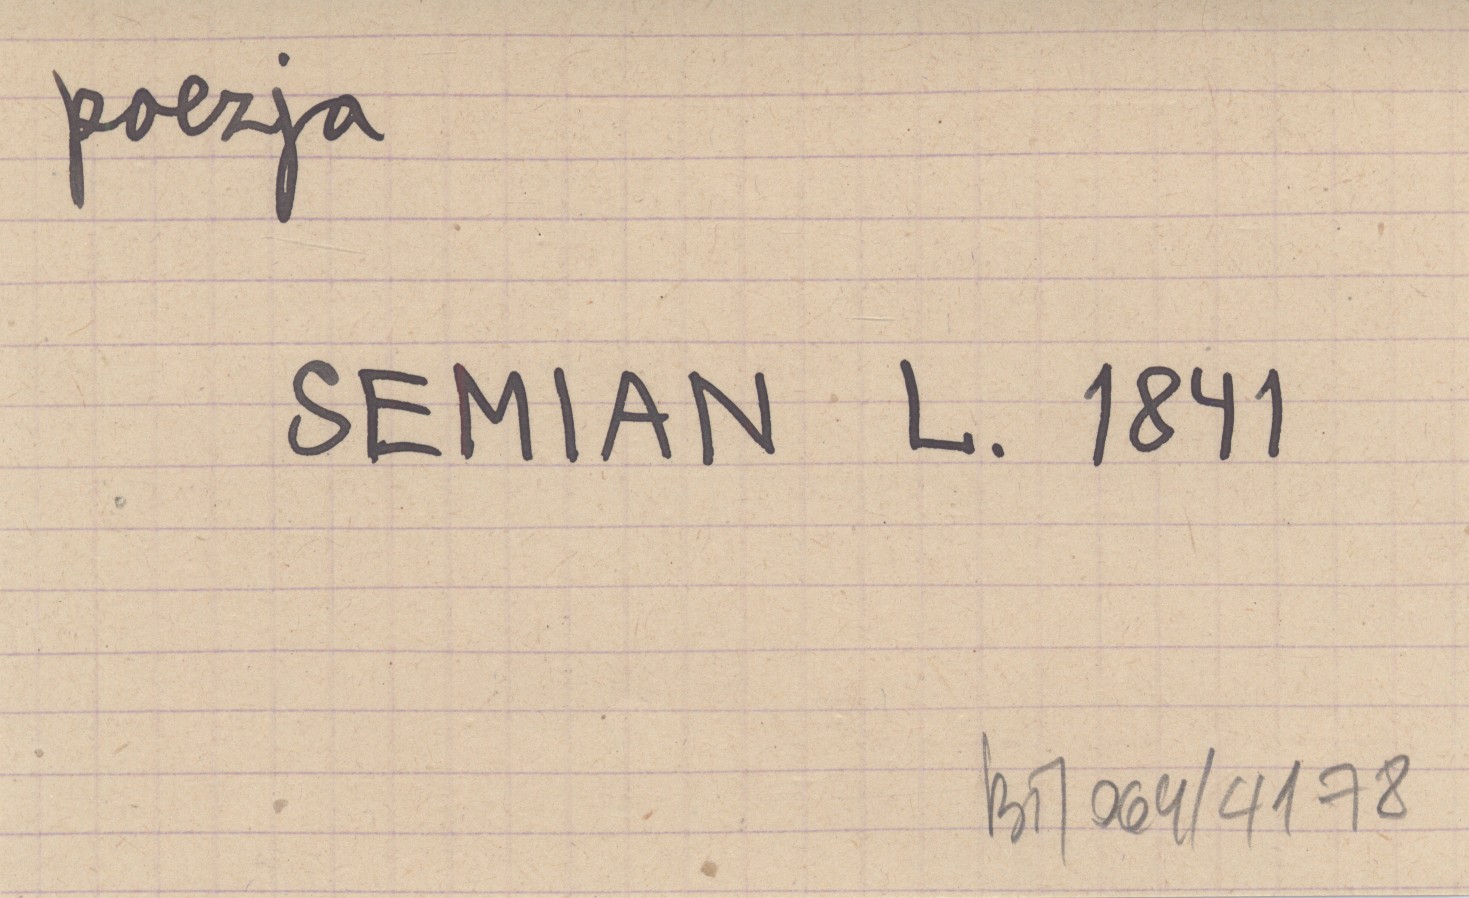 poezja
SEMIAN L. 1841
064/4178